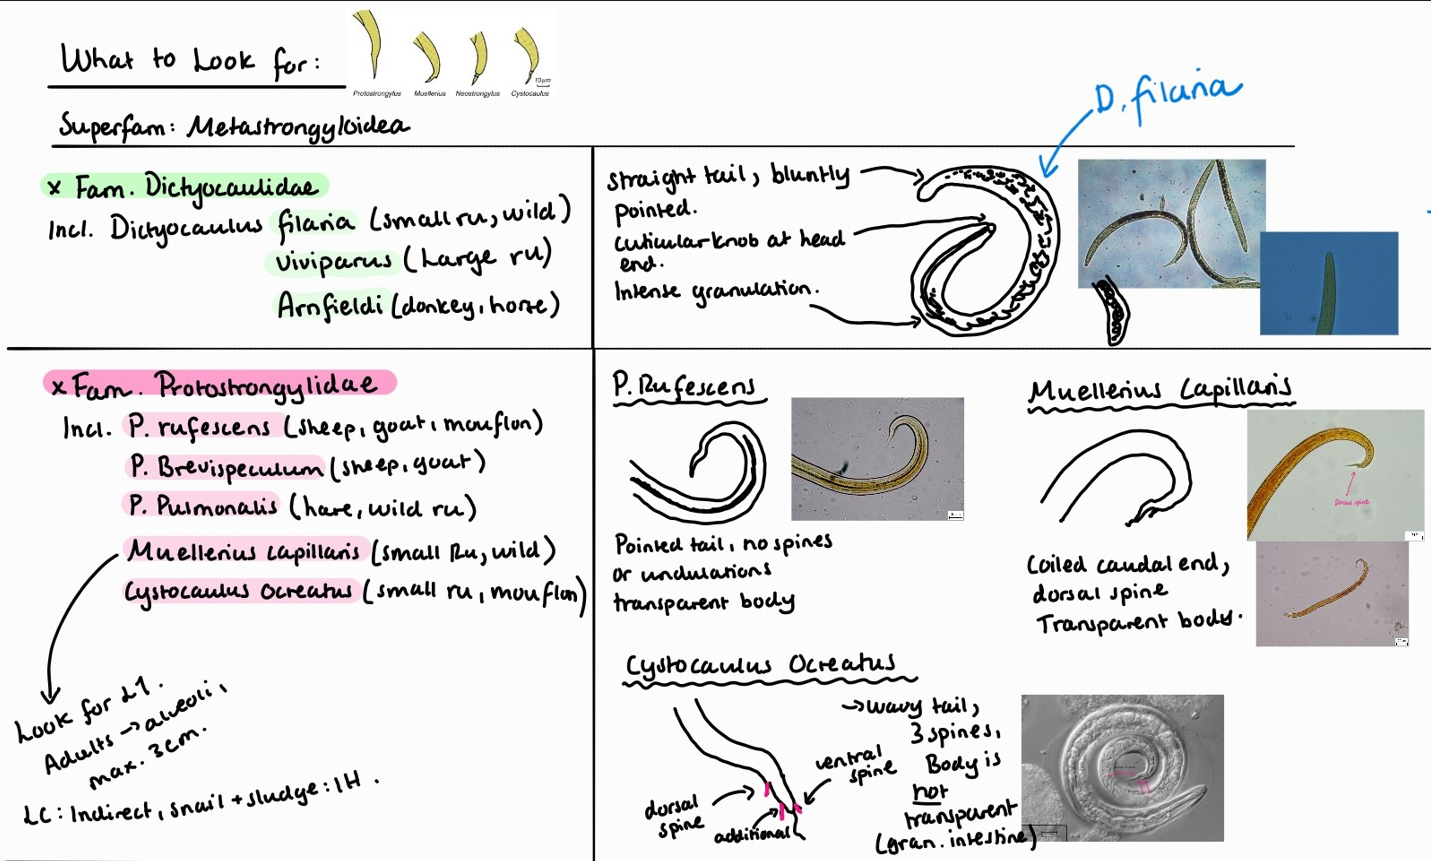 What to Look for:
Protostrongylus Muellerius Neostrongylus Cystocaulus
10 µm
Superfam: Metastrongyloidea
D. filaria
x Fam. Dictyocaulidae
Incl. Dictyocaulus filaria (small ru, wild)
viviparus (Large ru)
Arnfieldi (donkey, horse)
straight tail, bluntly
pointed.
cuticular knob at head
end.
Intense granulation.
x Fam. Protostrongylidae
Incl. P. rufescens (sheep, goat, mouflon)
P. Brevispeculum (sheep, goat)
P. Pulmonalis (hare, wild ru)
Muellerius capillaris (small Ru, wild)
Cystocaulus Ocreatus (small ru, mouflon)
Look for L1.
Adults → alveoli,
max. 3cm.
LC: Indirect, snail + sludge: IH.
P. Rufescens
Pointed tail, no spines
or undulations
transparent body
Muellerius Capillaris
Dorsal spine
Coiled caudal end,
dorsal spine
Transparent body.
Cystocaulus Ocreatus
→ wavy tail,
3 spines,
Body is
not
transparent
(gran. intestine)
ventral
spine
dorsal
spine
additional